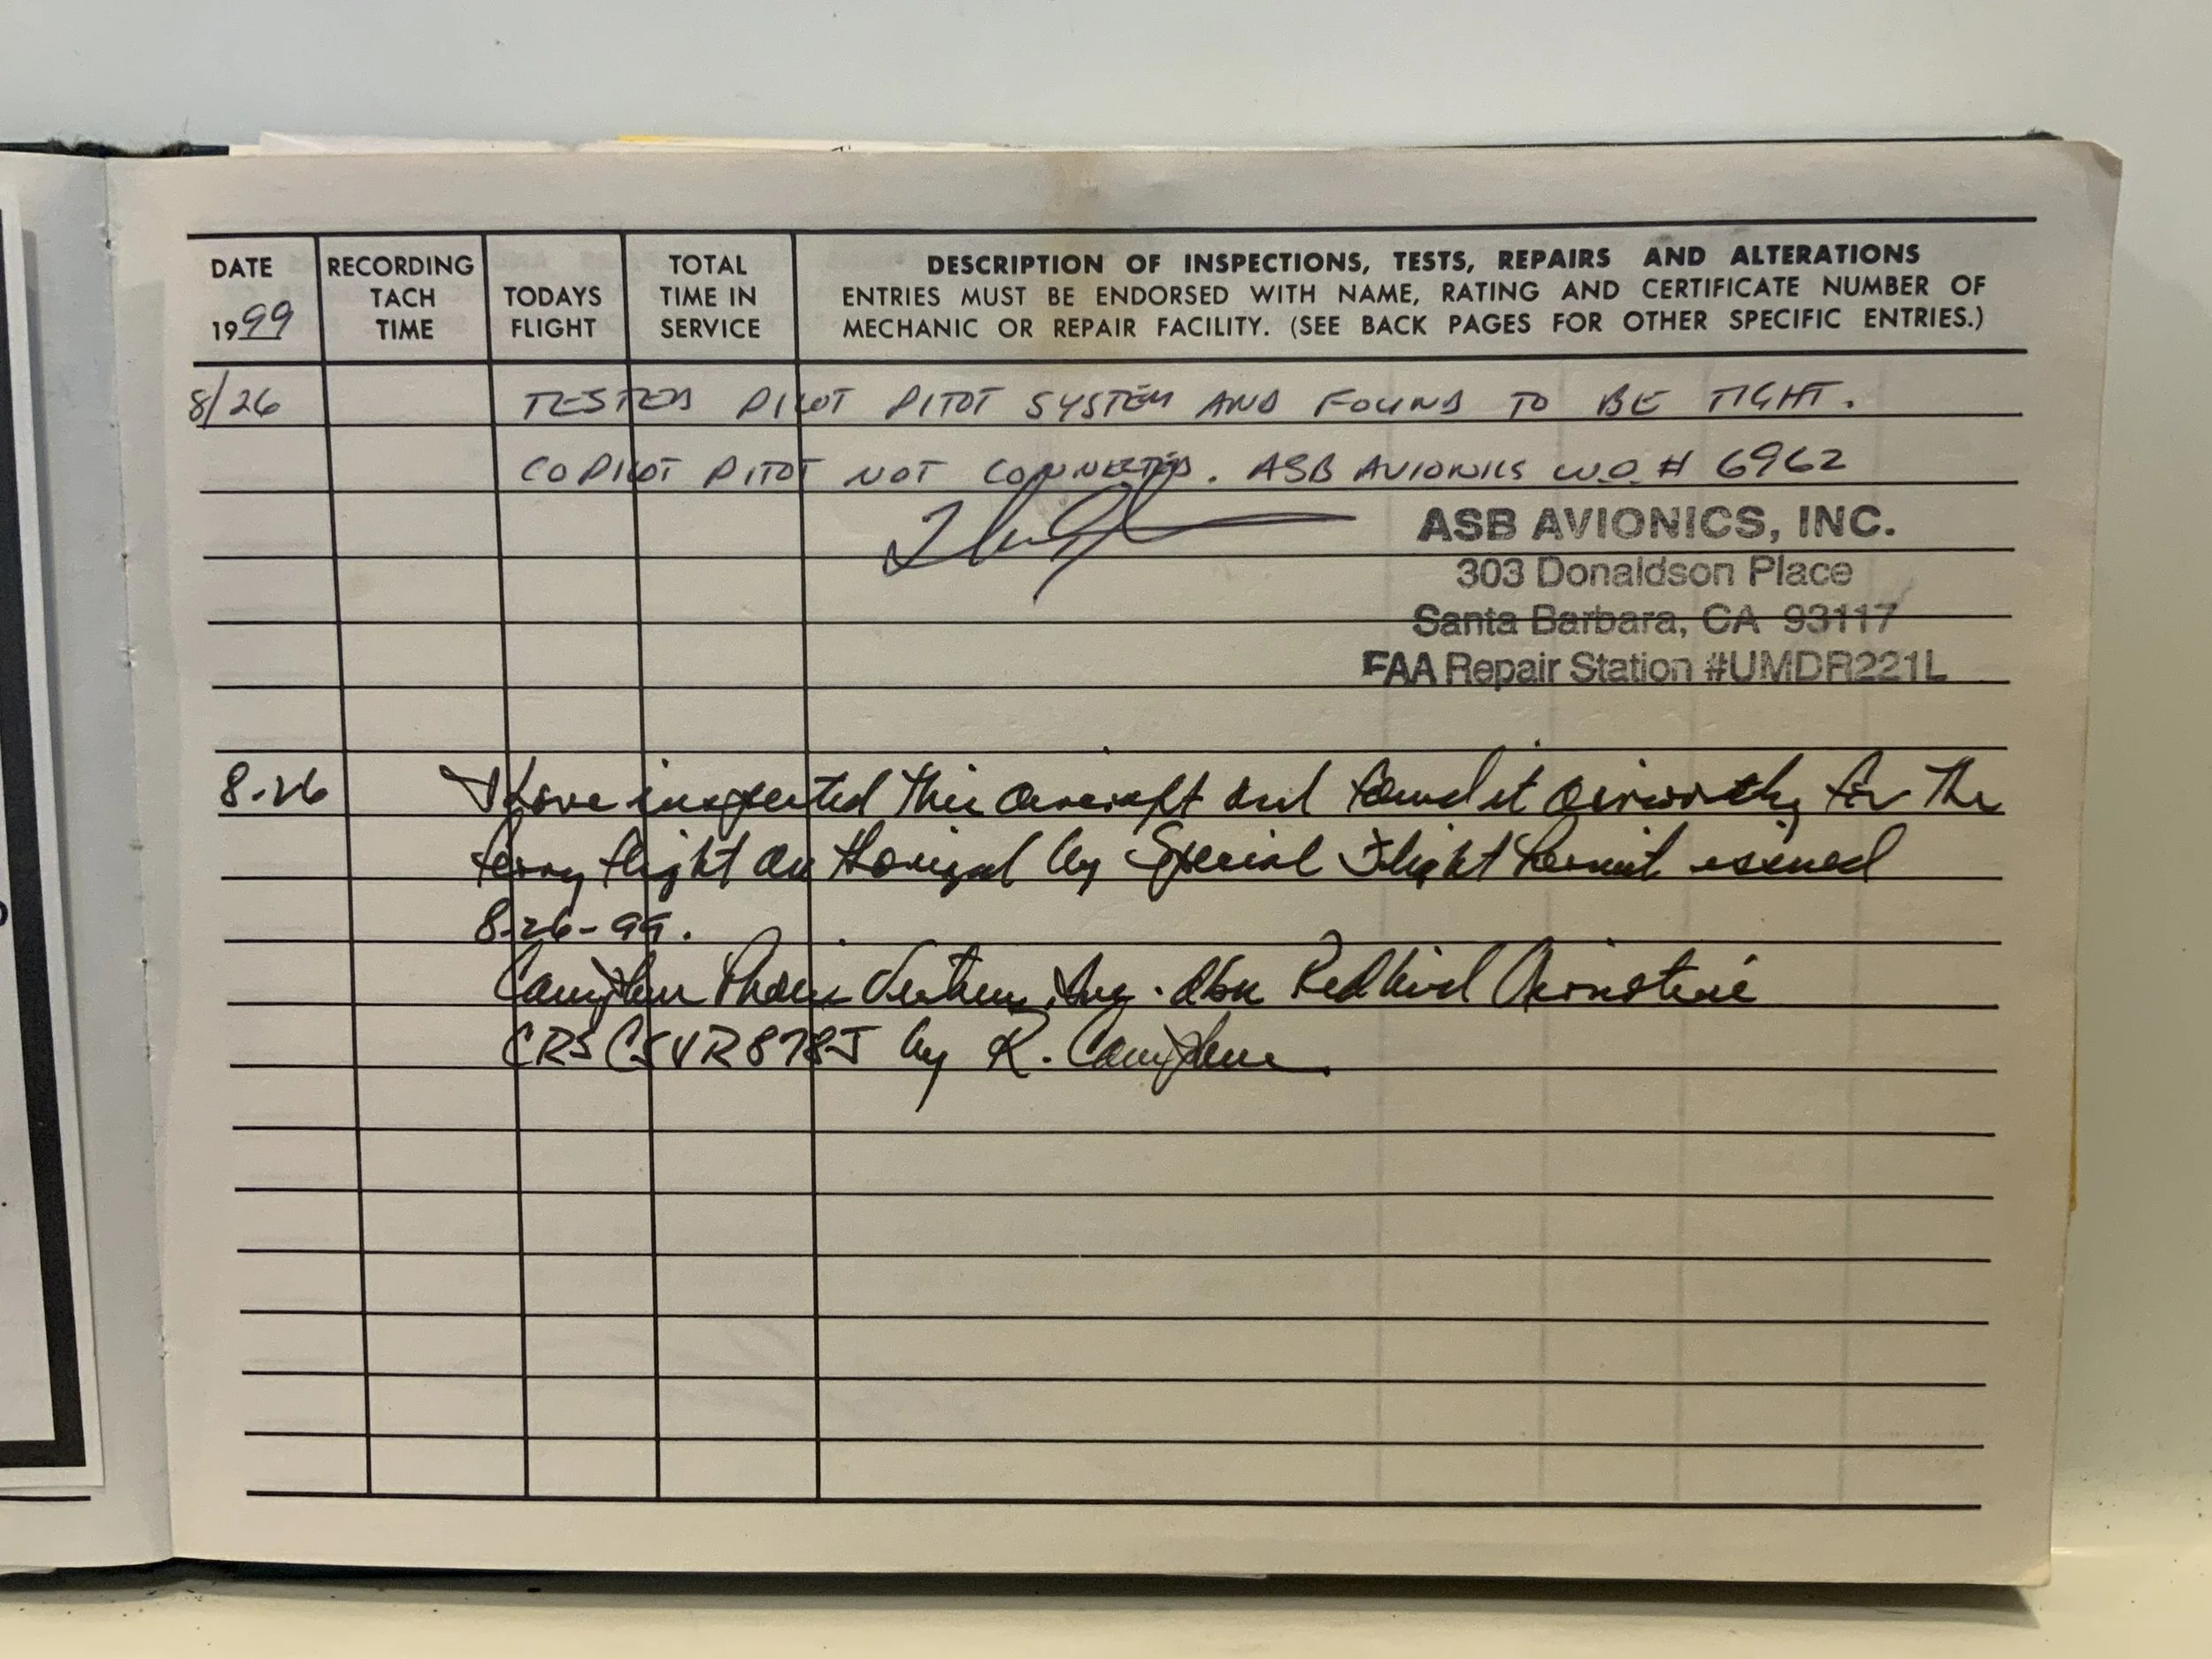 DATE
1999
RECORDING
TACH
TIME
TODAYS
FLIGHT
TOTAL
TIME IN
SERVICE
DESCRIPTION OF INSPECTIONS, TESTS, REPAIRS AND ALTERATIONS
ENTRIES MUST BE ENDORSED WITH NAME, RATING AND CERTIFICATE NUMBER OF
MECHANIC OR REPAIR FACILITY. (SEE BACK PAGES FOR OTHER SPECIFIC ENTRIES.)
8/26 TESTED PILOT PITOT SYSTEM AND FOUND TO BE TIGHT.
COPILOT PITOT NOT CONNECTED. ASB AVIONICS W.O. # 6962
ASB AVIONICS, INC.
303 Donaldson Place
Santa Barbara, CA 93117
FAA Repair Station #UMDR221L
8-26 I have inspected this aircraft and found it airworthy for the
ferry flight authorized by Special Flight Permit issued
8-26-99.
Inc. dba Redbird
CRS CSVR878J by R.